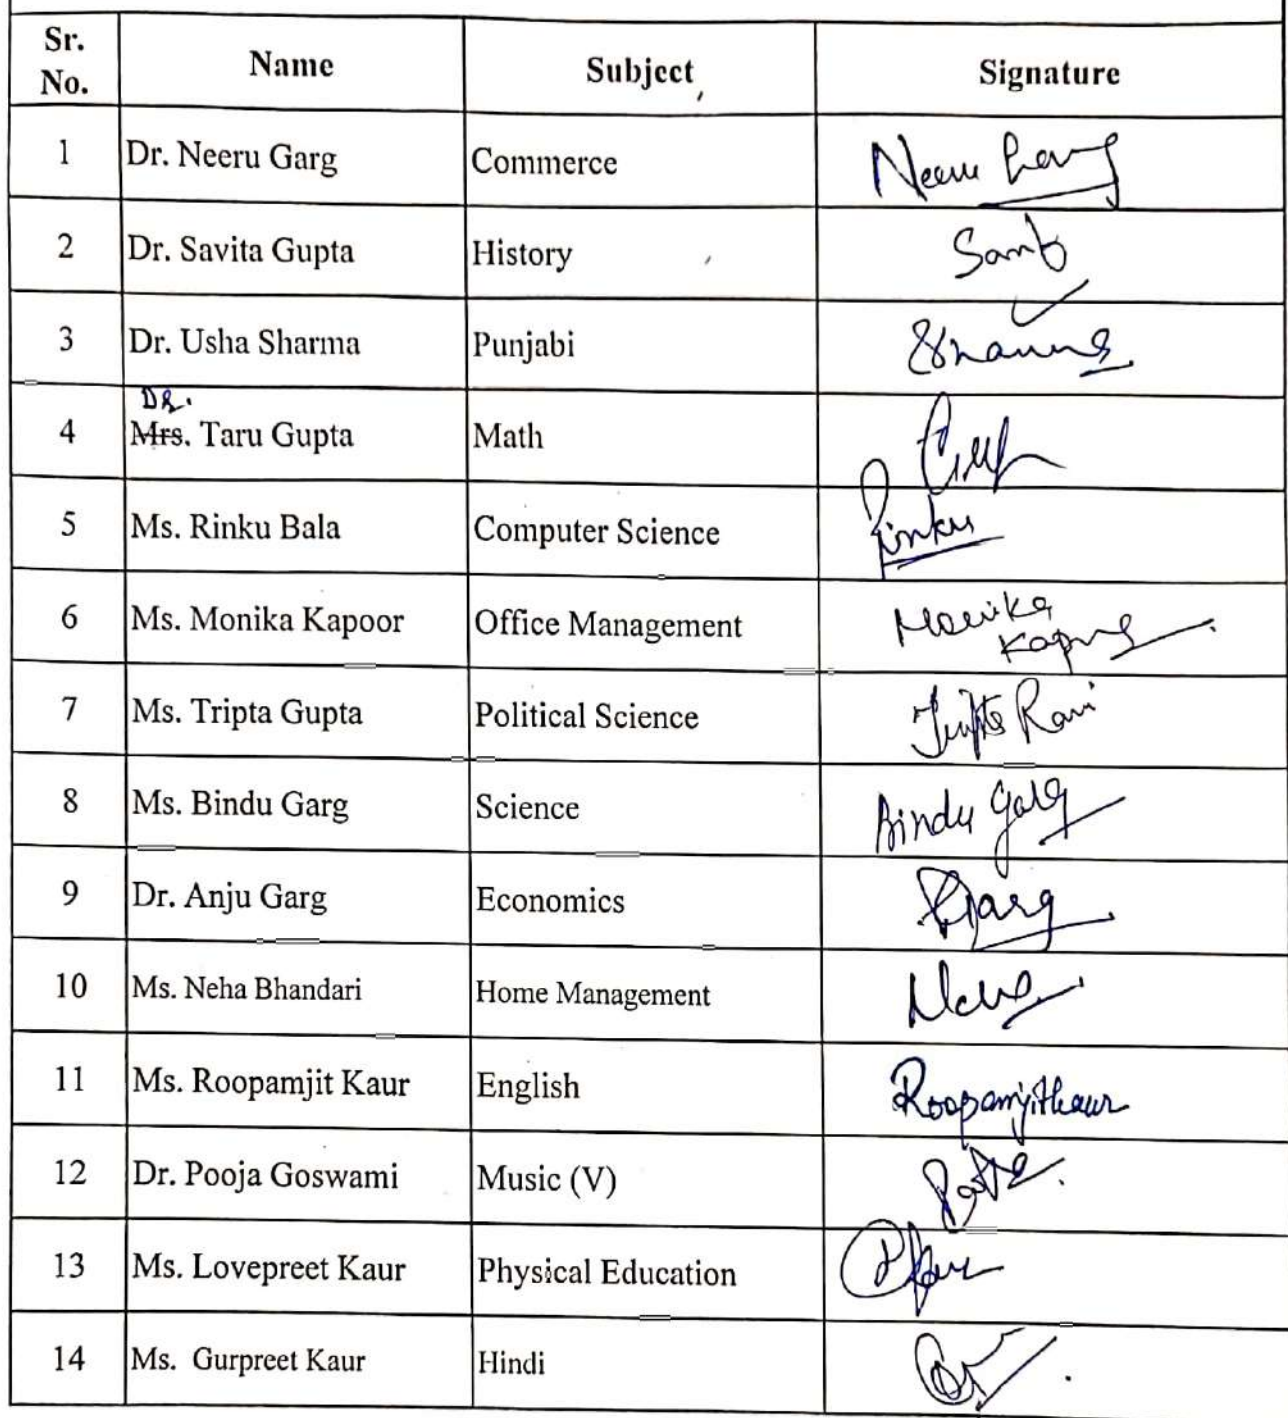 Sr. No. Name Subject Signature
1 Dr. Neeru Garg Commerce Neeru Garg
2 Dr. Savita Gupta History
3 Dr. Usha Sharma Punjabi
DR.
4 Mrs. Taru Gupta Math
5 Ms. Rinku Bala Computer Science Rinku
6 Ms. Monika Kapoor Office Management Monika Kapoor
7 Ms. Tripta Gupta Political Science Tripta Rani
8 Ms. Bindu Garg Science Bindu Garg
9 Dr. Anju Garg Economics Garg
10 Ms. Neha Bhandari Home Management Neha
11 Ms. Roopamjit Kaur English Roopamjitkaur
12 Dr. Pooja Goswami Music (V)
13 Ms. Lovepreet Kaur Physical Education
14 Ms. Gurpreet Kaur Hindi